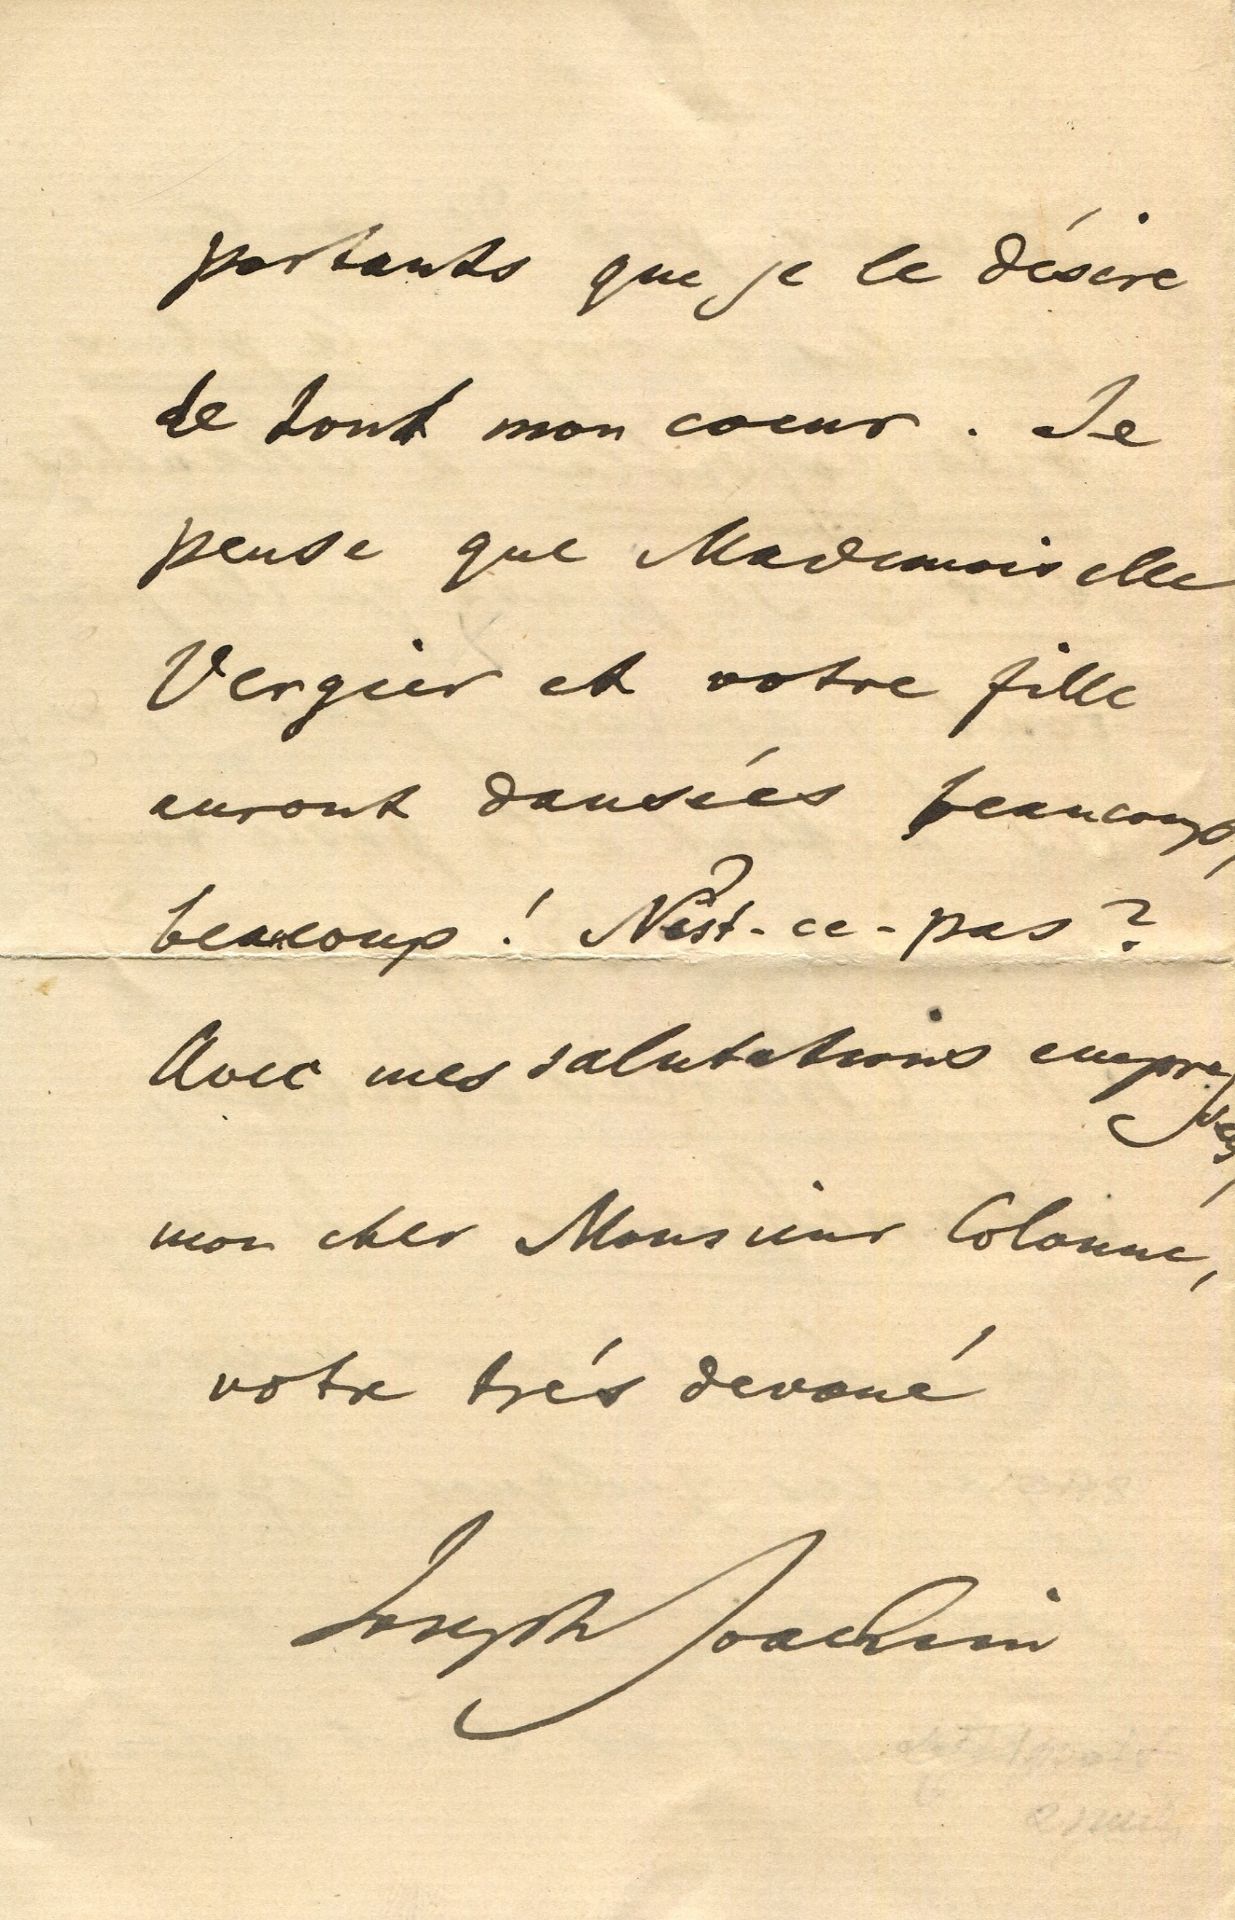 portants que je le désire
de tout mon coeur. Je
pense que Mademoiselle
Vergier et votre fille
auront dansées beaucoup,
beaucoup! N'est-ce-pas?
Avec mes salutations empressées,
mon cher Monsieur Colonne,
votre trés devoué
Joseph Joachim